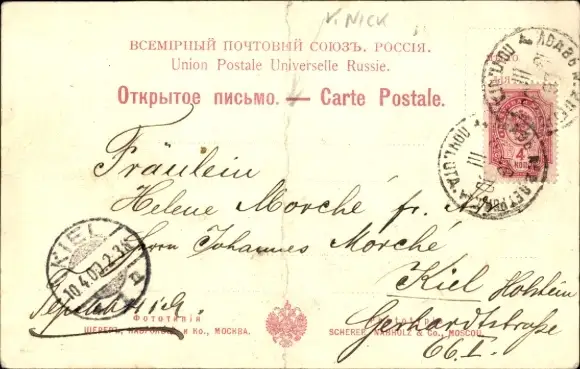 V. NICK
ВСЕМІРНЫЙ ПОЧТОВЫЙ СОЮЗЪ. РОССІЯ.
Union Postale Universelle Russie.
Открытое письмо. — Carte Postale.
4
КОП
Fräulein
Helene Morché fr. Adr.
Herrn Johannes Morché
Kiel Holstein
Gerhardtstraße
66.I.
KIEL
10.4.03.2-3N
Германія.
Фототипія
ШЕРЕРЪ, НАБГОЛЬЦЪ и Ко., МОСКВА.
Phototypie
SCHERER, NABHOLZ & Co., MOSCOU.